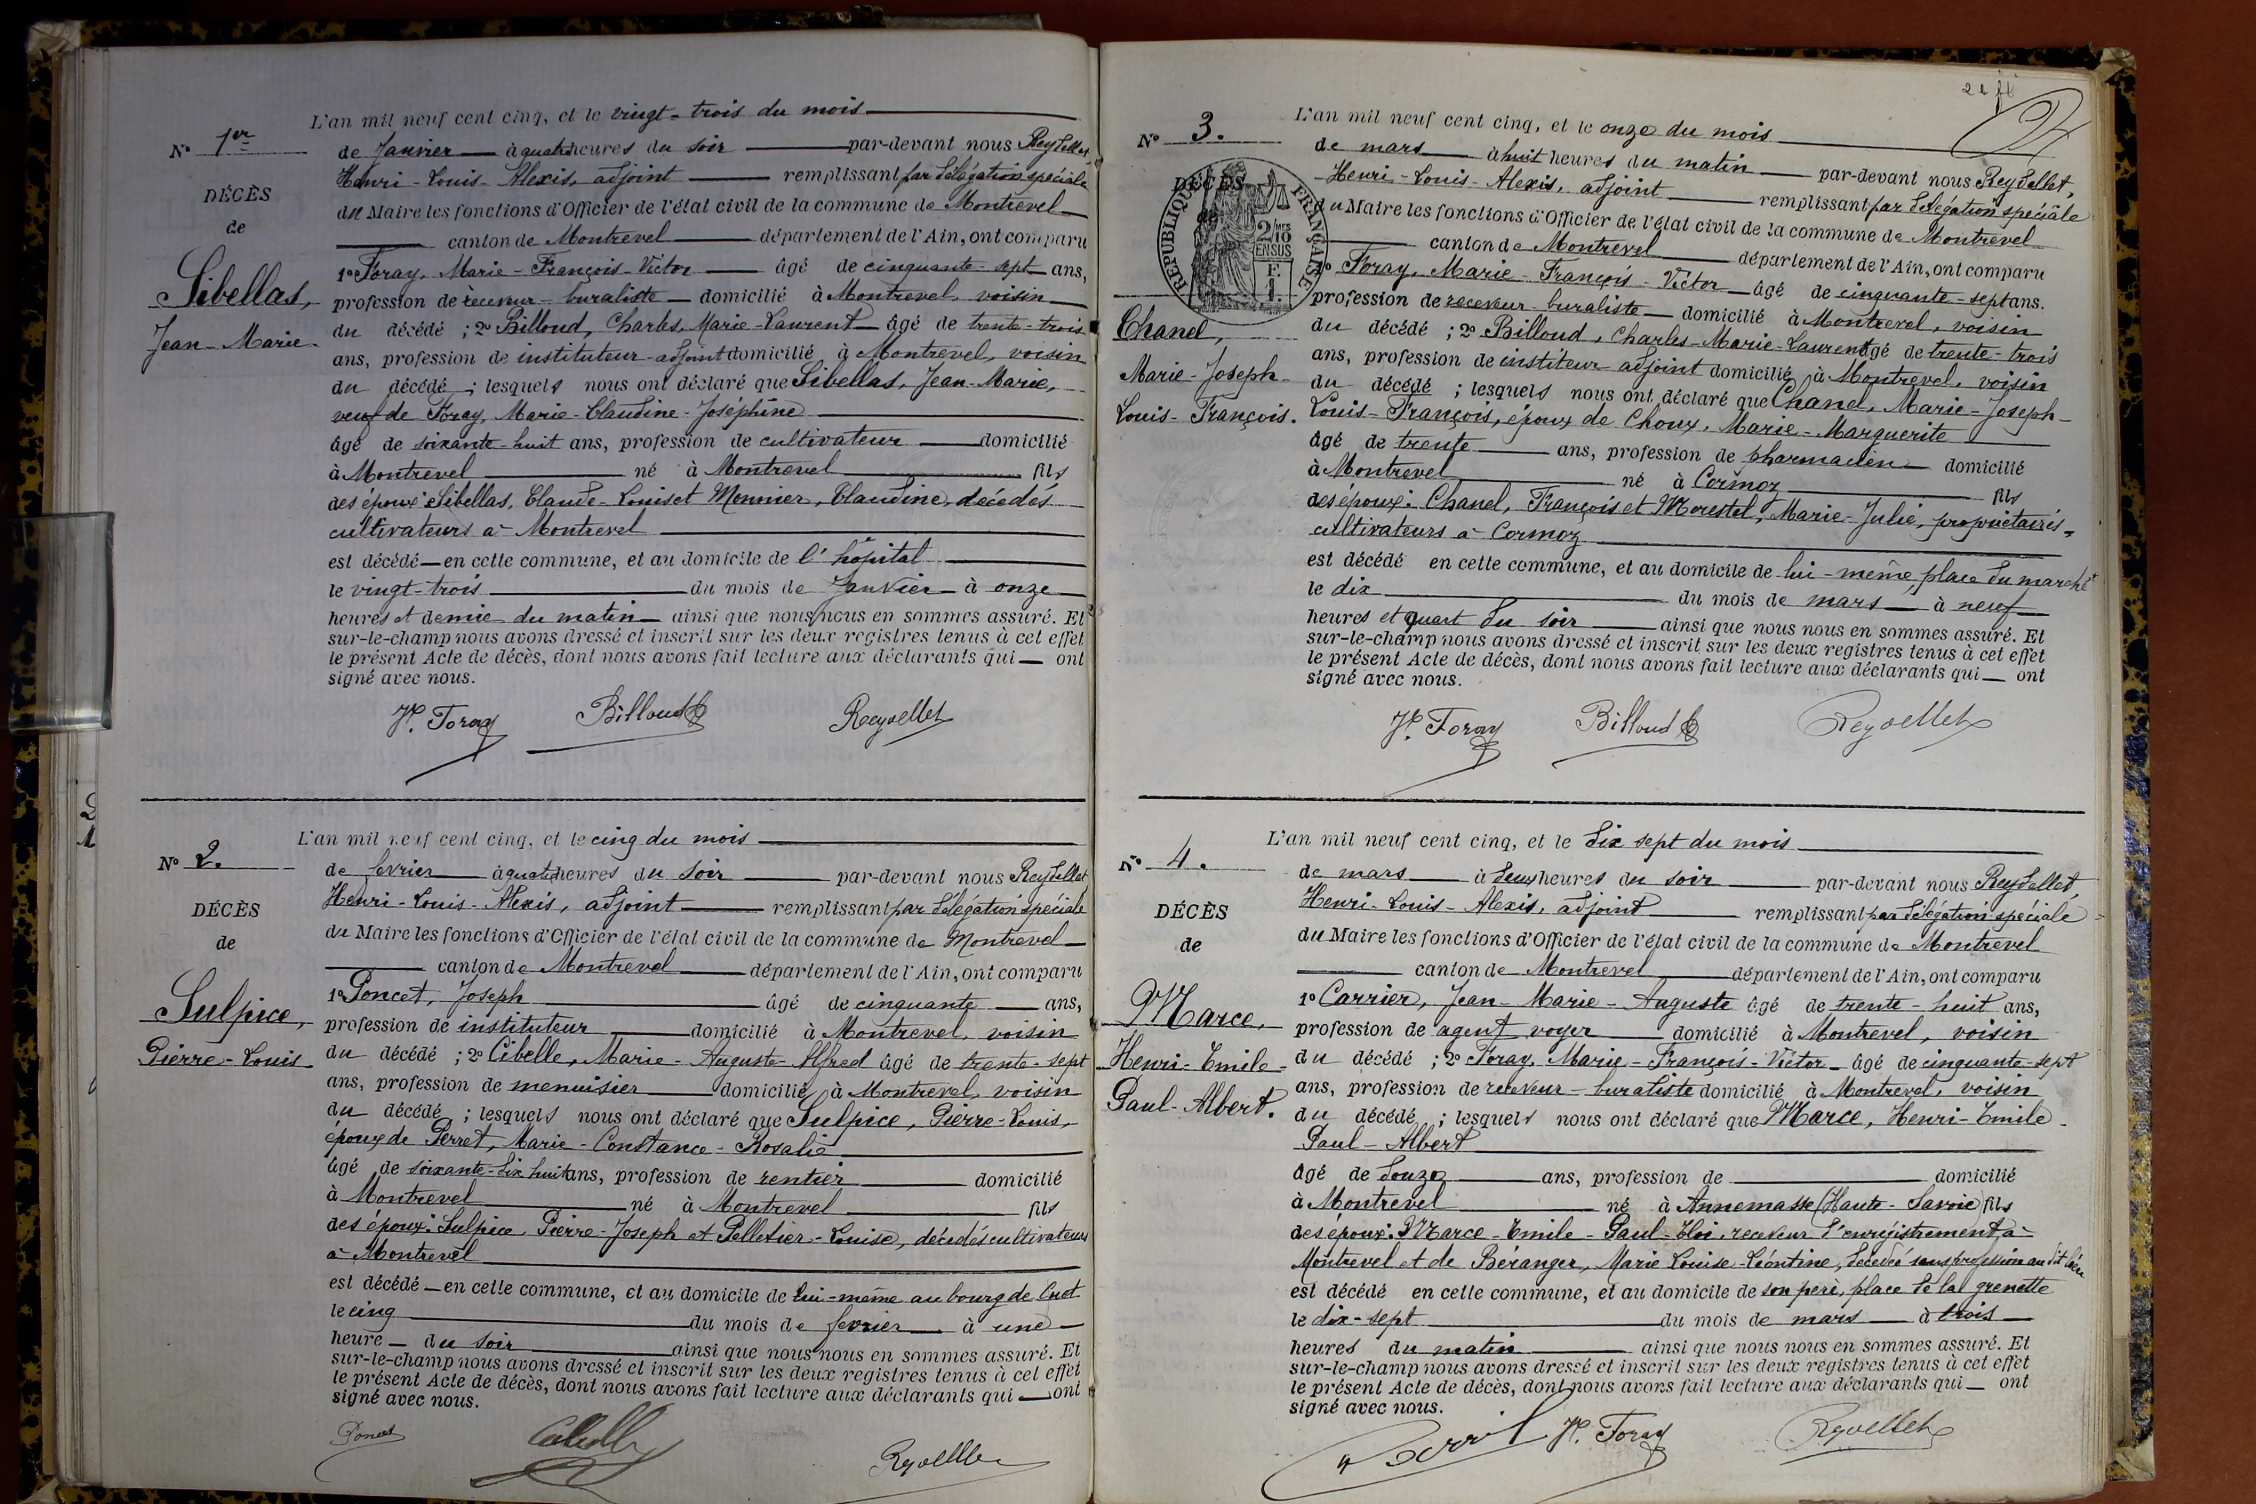 L'an mil neuf cent cinq, et le vingt-trois du mois
N° 1er
de Janvier à quatre heures du soir par-devant nous Reydellet
DÉCÈS
Henri-Louis-Alexis, adjoint remplissant par délégation spéciale
de
du Maire les fonctions d'Officier de l'état civil de la commune de Montrevel
canton de Montrevel département de l'Ain, ont comparu
Sibellas,
Jean-Marie.
1° Foray, Marie-François-Victor âgé de cinquante-sept ans,
profession de receveur-buraliste domicilié à Montrevel, voisin
du décédé ; 2° Billoud, Charles, Marie-Laurent âgé de trente-trois
ans, profession de instituteur-adjoint domicilié à Montrevel, voisin
du décédé ; lesquels nous ont déclaré que Sibellas, Jean-Marie,
veuf de Foray, Marie-Claudine-Joséphine
âgé de soixante-huit ans, profession de cultivateur domicilié
à Montrevel né à Montrevel fils
des époux: Sibellas, Claude-Louis et Monnier, Claudine, décédés
cultivateurs à Montrevel
est décédé en cette commune, et au domicile de l'hôpital
le vingt-trois du mois de Janvier à onze
heures et demie du matin ainsi que nous nous en sommes assuré. Et
sur-le-champ nous avons dressé et inscrit sur les deux registres tenus à cet effet
le présent Acte de décès, dont nous avons fait lecture aux déclarants qui ont
signé avec nous.
Foray Billoud Reydellet
L'an mil neuf cent cinq, et le cinq du mois
N° 2.
de fevrier à quatre heures du soir par-devant nous Reydellet
Henri-Louis-Alexis, adjoint remplissant par délégation spéciale
DÉCÈS
de
du Maire les fonctions d'Officier de l'état civil de la commune de Montrevel
canton de Montrevel département de l'Ain, ont comparu
Sulpice,
Pierre-Louis
1° Poncet, Joseph âgé de cinquante ans,
profession de instituteur domicilié à Montrevel, voisin
du décédé ; 2° Cibelle, Marie-Auguste-Alfred âgé de trente-sept
ans, profession de menuisier domicilié à Montrevel, voisin
du décédé ; lesquels nous ont déclaré que Sulpice, Pierre-Louis,
époux de Perret, Marie-Constance-Rosalie
âgé de soixante-dix huit ans, profession de rentier domicilié
à Montrevel né à Montrevel fils
des époux: Sulpice Pierre-Joseph et Pelletier-Louise, décédés cultivateurs
à Montrevel
est décédé en cette commune, et au domicile de lui-même au bourg de Cuet
le cinq du mois de fevrier à une
heure du soir ainsi que nous nous en sommes assuré. Et
sur-le-champ nous avons dressé et inscrit sur les deux registres tenus à cet effet
le présent Acte de décès, dont nous avons fait lecture aux déclarants qui ont
signé avec nous.
Poncet Cibelle Reydellet
L'an mil neuf cent cinq, et le onze du mois
N° 3.
de mars à huit heures du matin par-devant nous Reydellet,
DÉCÈS
de
RÉPUBLIQUE FRANÇAISE
2 MES 10 EN SUS
F. 1.
Henri-Louis-Alexis, adjoint remplissant par délégation spéciale
du Maire les fonctions d'Officier de l'état civil de la commune de Montrevel
canton de Montrevel département de l'Ain, ont comparu
1° Foray, Marie-François-Victor âgé de cinquante-sept ans.
profession de receveur-buraliste domicilié à Montrevel, voisin
Chanel,
Marie-Joseph-
Louis-François.
du décédé ; 2° Billoud, Charles-Marie-Laurent âgé de trente-trois
ans, profession de institeur adjoint domicilié à Montrevel, voisin
du décédé ; lesquels nous ont déclaré que Chanel, Marie-Joseph-
Louis-François, époux de Choux, Marie-Marguerite
âgé de trente ans, profession de pharmacien domicilié
à Montrevel né à Cormoz fils
des époux: Chanel, François et Morestel, Marie-Julie, propriétaires-
cultivateurs à Cormoz
est décédé en cette commune, et au domicile de lui-même, place du marché
le dix du mois de mars à neuf
heures et quart du soir ainsi que nous nous en sommes assuré. Et
sur-le-champ nous avons dressé et inscrit sur les deux registres tenus à cet effet
le présent Acte de décès, dont nous avons fait lecture aux déclarants qui ont
signé avec nous.
Foray Billoud Reydellet
L'an mil neuf cent cinq, et le dix sept du mois
N° 4.
de mars à deux heures du soir par-devant nous Reydellet
Henri-Louis-Alexis, adjoint remplissant par délégation spéciale
DÉCÈS
de
du Maire les fonctions d'Officier de l'état civil de la commune de Montrevel
canton de Montrevel département de l'Ain, ont comparu
Marce,
Henri-Emile-
Paul-Albert.
1° Carrier, Jean-Marie-Auguste âgé de trente-huit ans,
profession de agent voyer domicilié à Montrevel, voisin
du décédé ; 2° Foray, Marie-François-Victor âgé de cinquante-sept
ans, profession de receveur-buraliste domicilié à Montrevel, voisin
du décédé ; lesquels nous ont déclaré que Marce, Henri-Emile-
Paul-Albert
âgé de douze ans, profession de domicilié
à Montrevel né à Annemasse (Haute-Savoie) fils
des époux: Marce-Emile-Paul-Eloi, receveur d'enregistrement à
Montrevel et de Béranger, Marie Louise-Léontine, décédée sans profession au dit lieu
est décédé en cette commune, et au domicile de son père, place de la grenette
le dix-sept du mois de mars à trois
heures du matin ainsi que nous nous en sommes assuré. Et
sur-le-champ nous avons dressé et inscrit sur les deux registres tenus à cet effet
le présent Acte de décès, dont nous avons fait lecture aux déclarants qui ont
signé avec nous.
Foray Reydellet